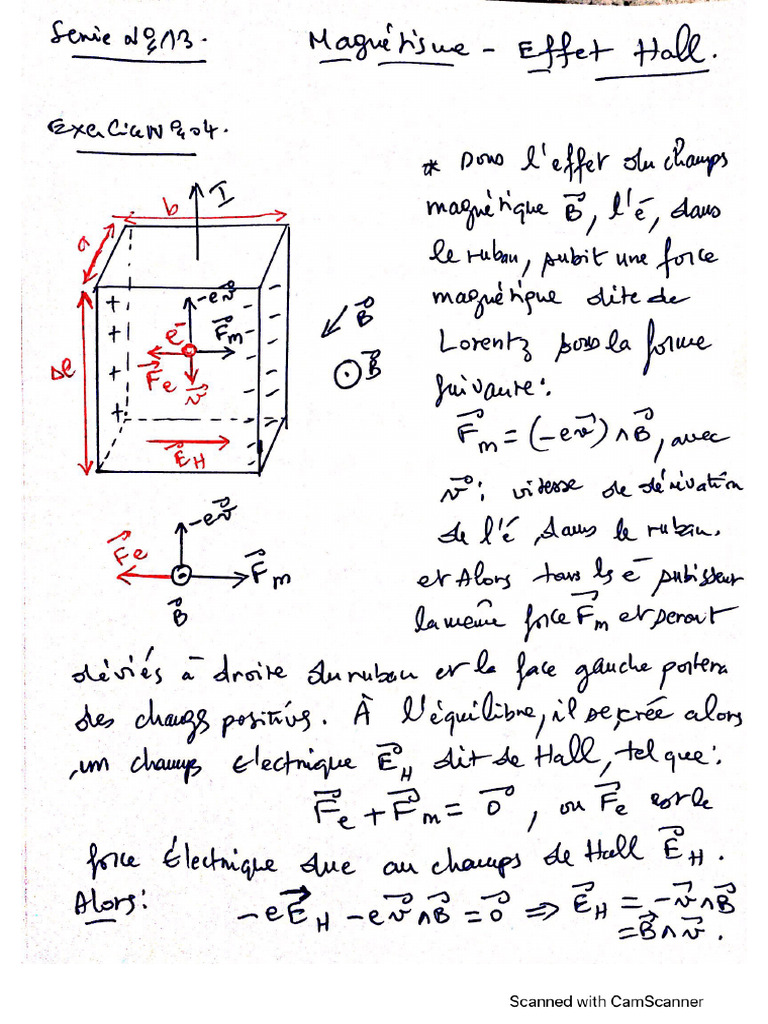 Serie N°13.
Magnétisme - Effet Hall.
Exercice N°04.
b
I
a
Δl
+
+
+
+
-e𝑣⃗
e⁻
F⃗m
F⃗e
𝑣⃗
E⃗H
B⃗
B⃗
* Dans l'effet du champs
magnétique B⃗, l'é, dans
le ruban, subit une force
magnétique dite de
Lorentz sous la forme
suivante:
F⃗m = (-e𝑣⃗) ∧ B⃗, avec
𝑣⃗: vitesse de dérivation
de l'é, dans le ruban.
et Alors tous ls e⁻ subissent
la même force F⃗m et seront
-e𝑣⃗
F⃗e
F⃗m
B⃗
déviés à droite du ruban et la face gauche portera
des charges positives. À l'équilibre, il se crée alors
un champs électrique E⃗H dit de Hall, tel que:
F⃗e + F⃗m = 0⃗, ou F⃗e est le
force Électrique due au champs de Hall E⃗H.
Alors: -eE⃗H - e𝑣⃗∧B⃗ = 0⃗ ⇒ E⃗H = -𝑣⃗∧B⃗
= B⃗∧𝑣⃗.
Scanned with CamScanner